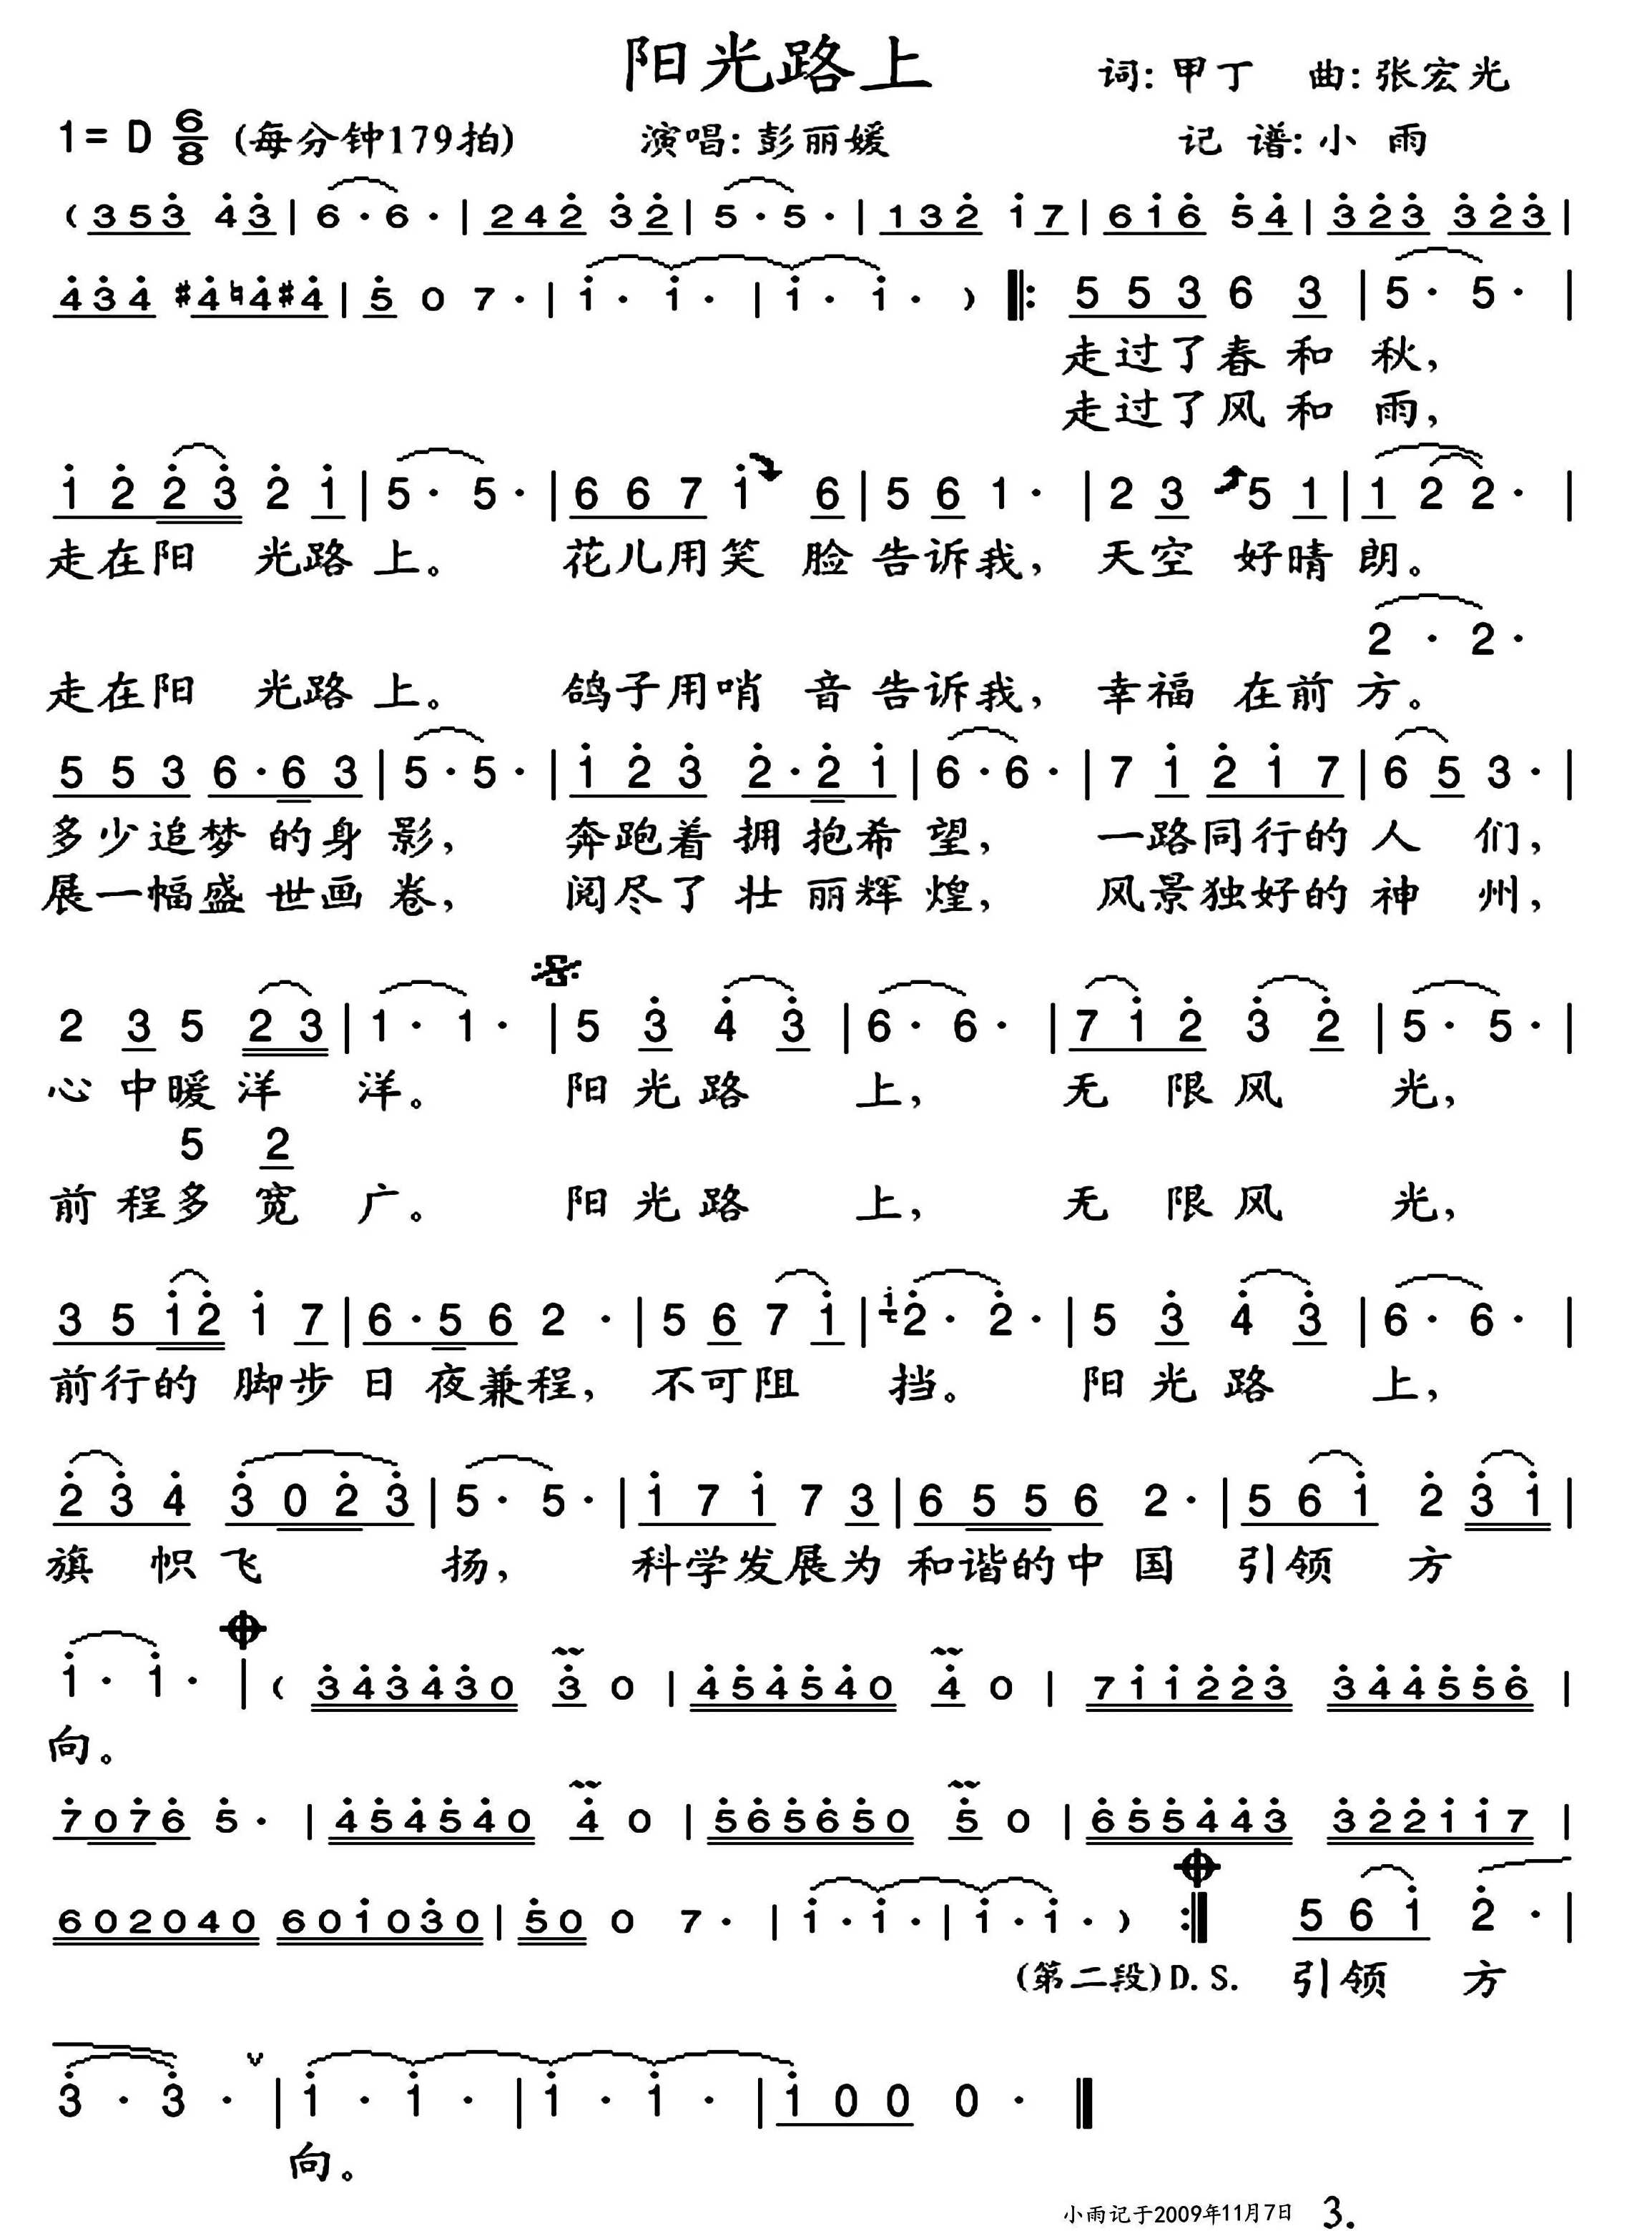 阳光路上
词: 甲丁 曲: 张宏光
1= D 6/8 (每分钟179拍) 演唱: 彭丽媛 记 谱: 小 雨
( 3 5 3̇ 4̇ 3̇ | 6 · 6 · | 2 4 2̇ 3̇ 2̇ | 5 · 5 · | 1 3 2̇ 1̇ 7 | 6 1̇ 6̇ 5̇ 4̇ | 3̇ 2̇ 3̇ 3̇ 2̇ 3̇ |
4̇ 3̇ 4̇ #4̇ ♮4̇ #4̇ | 5̇ 0 7 · | 1̇ · 1̇ · | 1̇ · 1̇ · ) ‖: 5 5 3 6 3 | 5 · 5 · |
走过了春 和 秋,
走过了风 和 雨,
1̇ 2̇ 2̇ 3̇ 2̇ 1̇ | 5 · 5 · | 6 6 7 1̇ 6 | 5 6 1 · | 2 3 5 1 | 1 2 2 · |
走在阳 光路 上。 花儿用笑 脸 告诉我, 天空 好晴 朗。
2 · 2 ·
走在阳 光路 上。 鸽子用哨 音 告诉我, 幸福 在前 方。
5 5 3 6 · 6 3 | 5 · 5 · | 1̇ 2̇ 3̇ 2̇ · 2̇ 1̇ | 6 · 6 · | 7 1̇ 2̇ 1̇ 7 | 6 5 3 · |
多少追梦 的身 影, 奔跑着 拥 抱希 望, 一路同行的 人 们,
展一幅盛 世画 卷, 阅尽了 壮 丽辉 煌, 风景独好的 神 州,
2 3 5 2 3 | 1 · 1 · | 5 3̇ 4̇ 3̇ | 6 · 6 · | 7 1̇ 2̇ 3̇ 2̇ | 5 · 5 · |
心 中暖 洋 洋。 阳 光 路 上, 无 限 风 光,
5 2
前 程多 宽 广。 阳 光 路 上, 无 限 风 光,
3 5 1̇ 2̇ 1̇ 7 | 6 · 5 6 2 · | 5 6 7 1̇ | 1̇ 2̇ · 2̇ · | 5 3̇ 4̇ 3̇ | 6 · 6 · |
前行的 脚步 日 夜兼程, 不可阻 挡。 阳 光 路 上,
2̇ 3̇ 4̇ 3̇ 0 2̇ 3̇ | 5 · 5 · | 1̇ 7 1̇ 7 3 | 6 5 5 6 2 · | 5 6 1̇ 2̇ 3̇ 1̇ |
旗 帜 飞 扬, 科学发展为 和谐的中 国 引领 方
1̇ · 1̇ · | ( 3̇ 4̇ 3̇ 4̇ 3̇ 0 3̇ 0 | 4̇ 5̇ 4̇ 5̇ 4̇ 0 4̇ 0 | 7 1̇ 1̇ 2̇ 2̇ 3̇ 3̇ 4̇ 4̇ 5̇ 5̇ 6̇ |
向。
7̇ 0 7̇ 6̇ 5̇ · | 4̇ 5̇ 4̇ 5̇ 4̇ 0 4̇ 0 | 5̇ 6̇ 5̇ 6̇ 5̇ 0 5̇ 0 | 6̇ 5̇ 5̇ 4̇ 4̇ 3̇ 3̇ 2̇ 2̇ 1̇ 1̇ 7 |
6 0 2 0 4 0 6 0 1̇ 0 3̇ 0 | 5̇ 0 0 7 · | 1̇ · 1̇ · | 1̇ · 1̇ · ) :‖ 5 6 1̇ 2̇ · |
(第二段) D. S. 引领 方
3̇ · 3̇ · | 1̇ · 1̇ · | 1̇ · 1̇ · | 1̇ 0 0 0 · ‖
向。
小雨记于2009年11月7日 3.